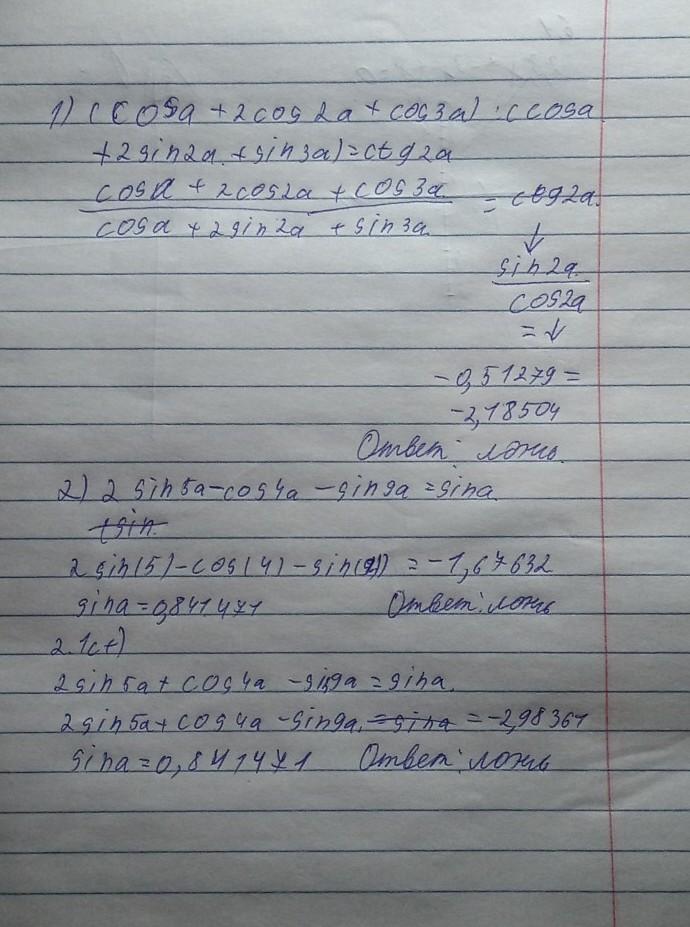 1) (cosa + 2cos2a + cos3a) : (cosa
+2sin2a + sin3a) = ctg2a
cosa + 2cos2a + cos3a = ctg2a.
cosa + 2sin2a + sin3a
↓
sin2a
cos2a
= ↓
-0,51279 =
-2,18504
Ответ: ложь.
2) 2 sin5a - cos4a - sin9a = sina
+sin.
2 sin(5) - cos(4) - sin(9) = -1,67632
sina = 0,841471 Ответ: ложь
2.1(+)
2sin5a + cos4a - sin9a = sina.
2sin5a + cos4a - sin9a. = sina = -2,98361
sina = 0,841471 Ответ: ложь